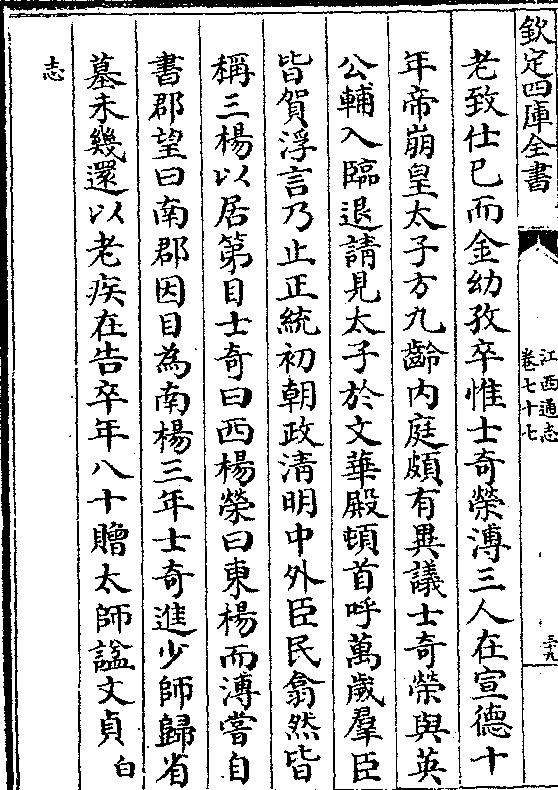 欽定四庫全書
江西通志
卷七十七
三九
老致仕已而金幼孜卒惟士奇榮溥三人在宣德十
年帝崩皇太子方九齡内庭頗有異議士奇榮與英
公輔入臨退請見太子於文華殿頓首呼萬歲羣臣
皆賀浮言乃止正統初朝政清明中外臣民翕然皆
稱三楊以居第目士奇曰西楊榮曰東楊而溥嘗自
書郡望曰南郡因目為南楊三年士奇進少師歸省
墓未幾還以老疾在告卒年八十贈太師諡文貞白
志